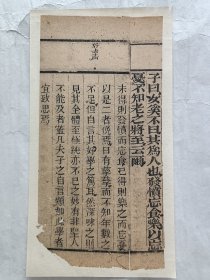 子曰女奚不曰其爲人也發憤忘食樂以忘
憂不知老之將至云爾
未得則發憤而忘食已得則樂之而忘憂
以是二者俛焉日有孳孳而不知年數之
不足但自言其好學之篤耳然深味之則
見其全體至極純亦不已之妙有非聖人
不能及者蓋凡夫子之自言類如此學者
宜致思焉